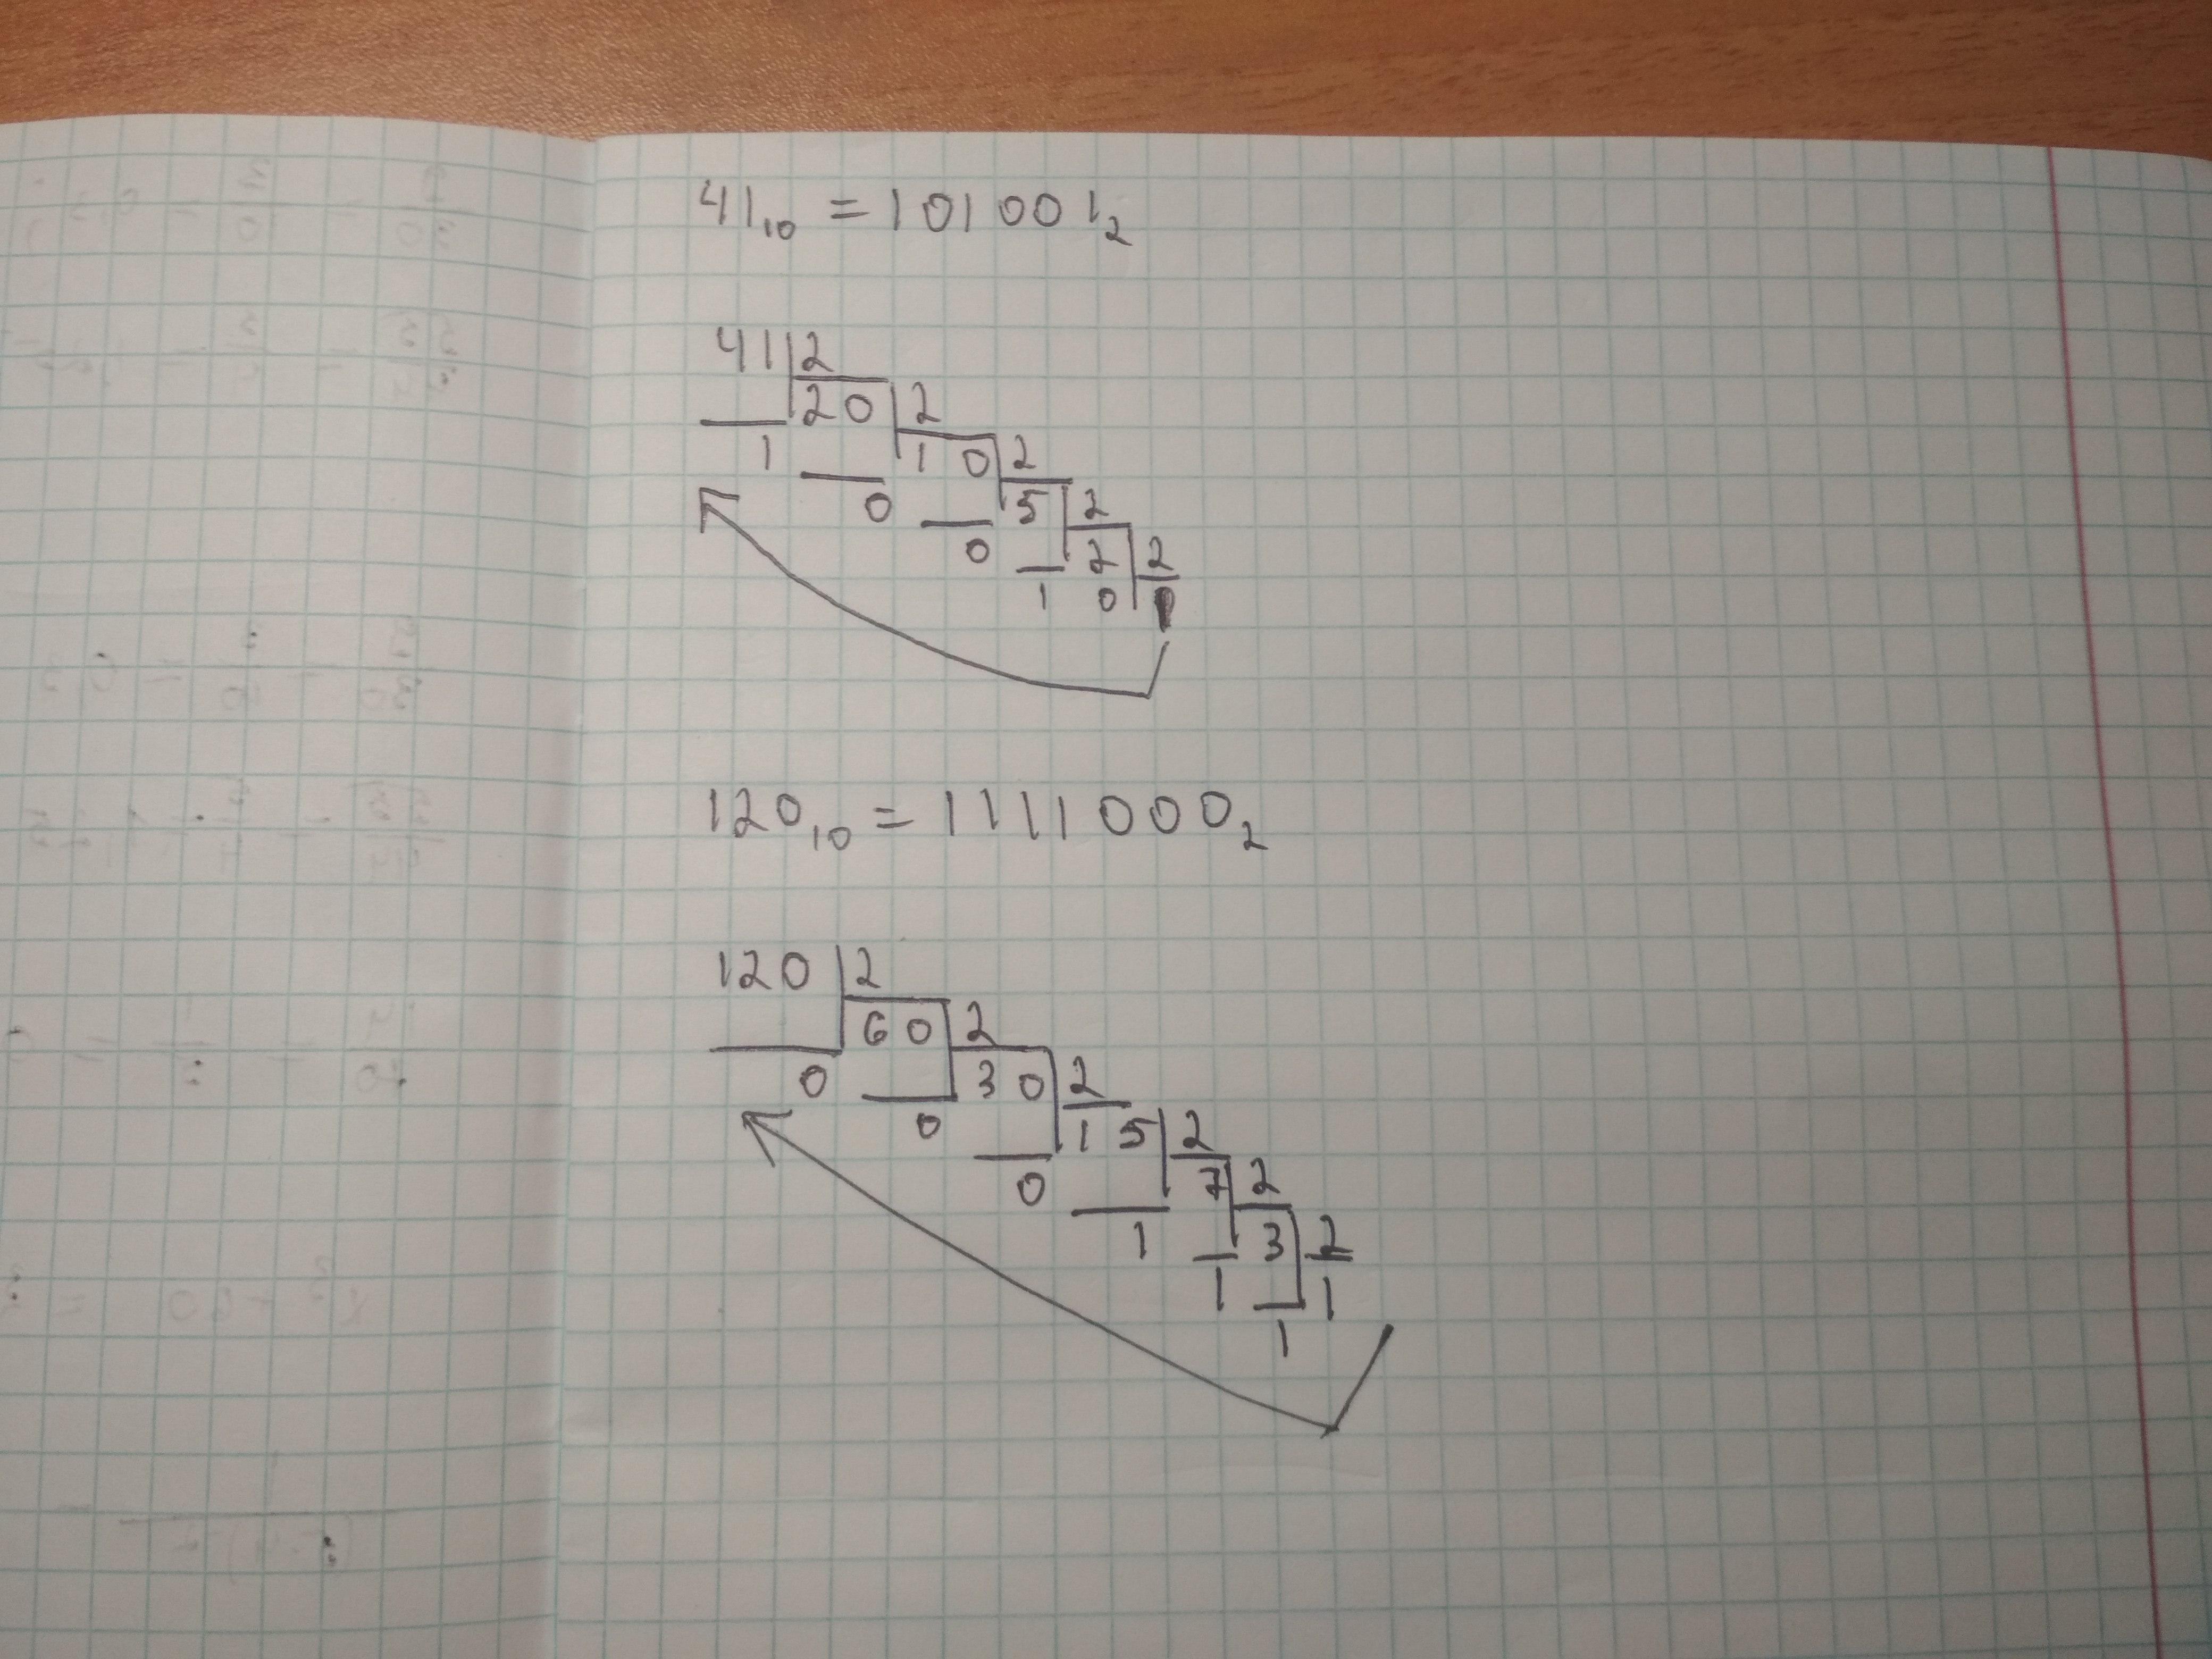 41₁₀ = 101001₂
41 2
20 2
1 10 2
0 5 2
0 2 2
1 0 1
120₁₀ = 1111000₂
120 2
60 2
0 30 2
0 15 2
0 7 2
1 3 2
1 1
1